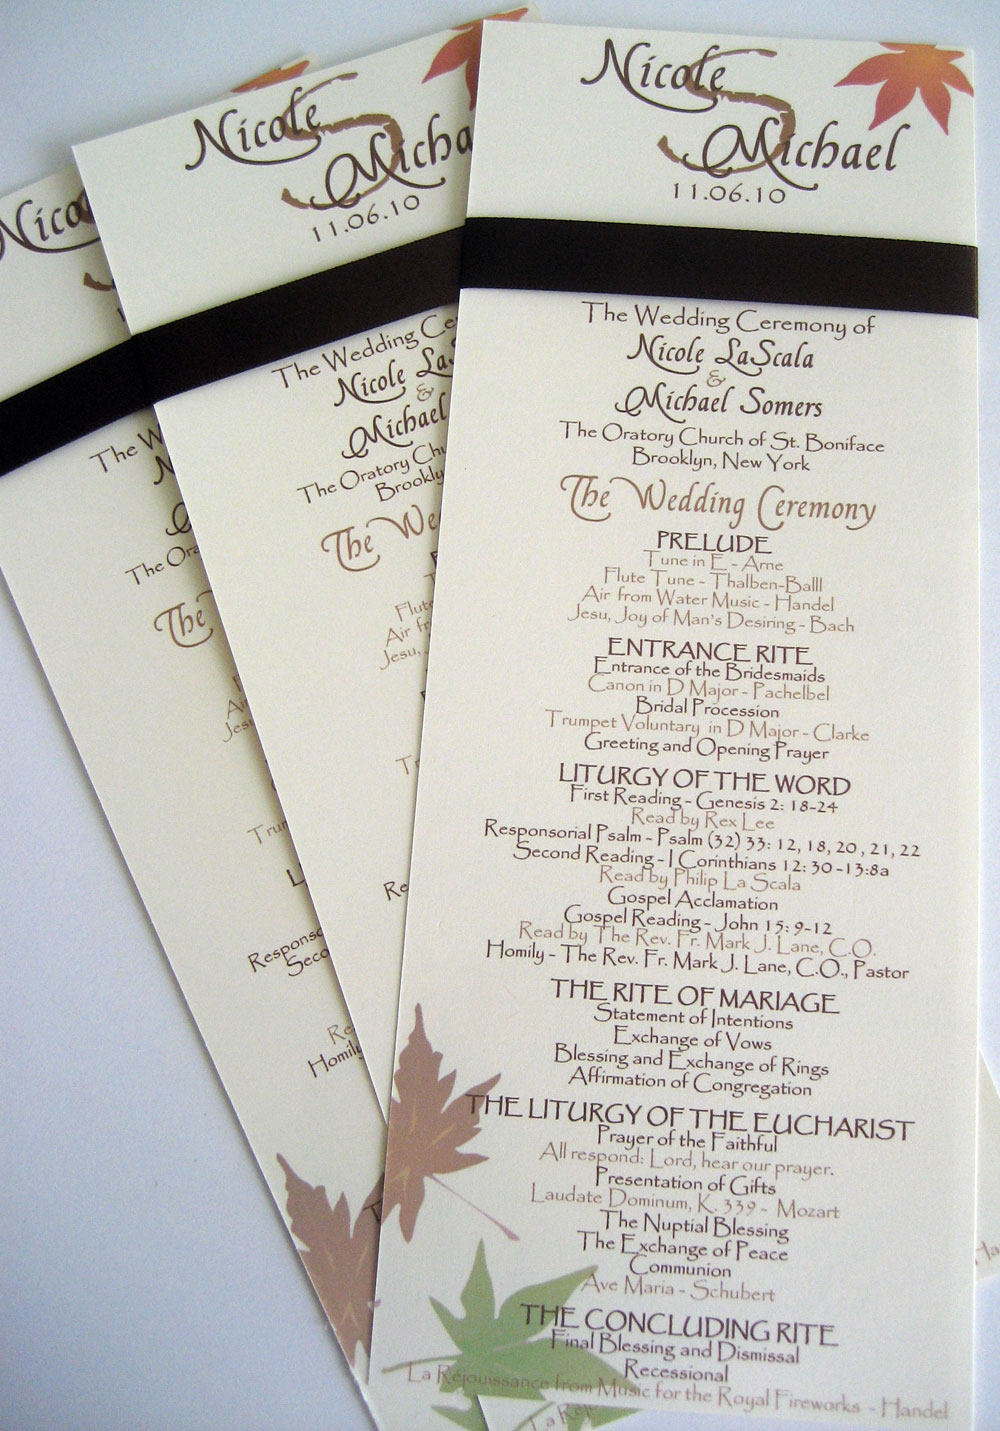 Nicole
S
Michael
11.06.10
The Wedding Ceremony of
Nicole LaScala
&
Michael Somers
The Oratory Church of St. Boniface
Brooklyn, New York
The Wedding Ceremony
PRELUDE
Tune in E - Arne
Flute Tune - Thalben-Balll
Air from Water Music - Handel
Jesu, Joy of Man's Desiring - Bach
ENTRANCE RITE
Entrance of the Bridesmaids
Canon in D Major - Pachelbel
Bridal Procession
Trumpet Voluntary in D Major - Clarke
Greeting and Opening Prayer
LITURGY OF THE WORD
First Reading - Genesis 2: 18-24
Read by Rex Lee
Responsorial Psalm - Psalm (32) 33: 12, 18, 20, 21, 22
Second Reading - I Corinthians 12: 30 -13:8a
Read by Philip La Scala
Gospel Acclamation
Gospel Reading - John 15: 9-12
Read by The Rev. Fr. Mark J. Lane, C.O.
Homily - The Rev. Fr. Mark J. Lane, C.O., Pastor
THE RITE OF MARIAGE
Statement of Intentions
Exchange of Vows
Blessing and Exchange of Rings
Affirmation of Congregation
THE LITURGY OF THE EUCHARIST
Prayer of the Faithful
All respond: Lord, hear our prayer.
Presentation of Gifts
Laudate Dominum, K. 339 - Mozart
The Nuptial Blessing
The Exchange of Peace
Communion
Ave Maria - Schubert
THE CONCLUDING RITE
Final Blessing and Dismissal
Recessional
La Réjouissance from Music for the Royal Fireworks - Handel
Nicole
S
Micha
11.06.10
The Wedding Ce
Nicole La
&
Michael
The Oratory Chu
Brookly
The We
Flute
Air fr
Jesu,
Tr
Re
Nico
The W
The Ora
The
Air
Jesu
Trum
L
Responso
Seco
Re
Homily
La Réj